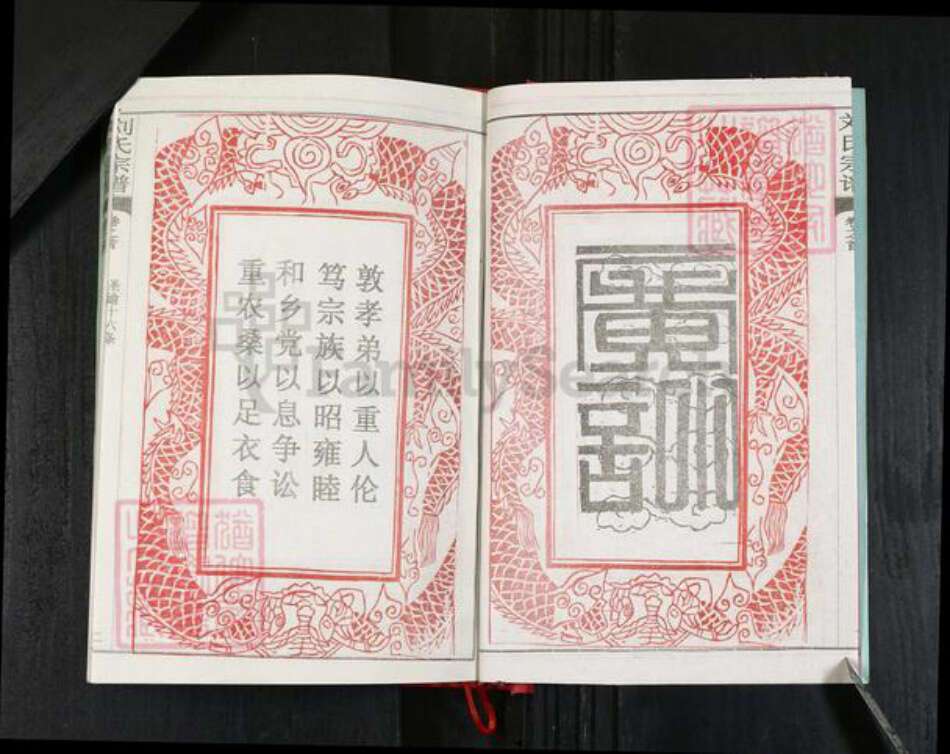 刘氏宗谱
卷之首
廣訓
敦孝弟以重人伦
笃宗族以昭雍睦
和乡党以息争讼
重农桑以足衣食
刘氏宗谱
卷之首
圣谕十六条
二
FamilySearch